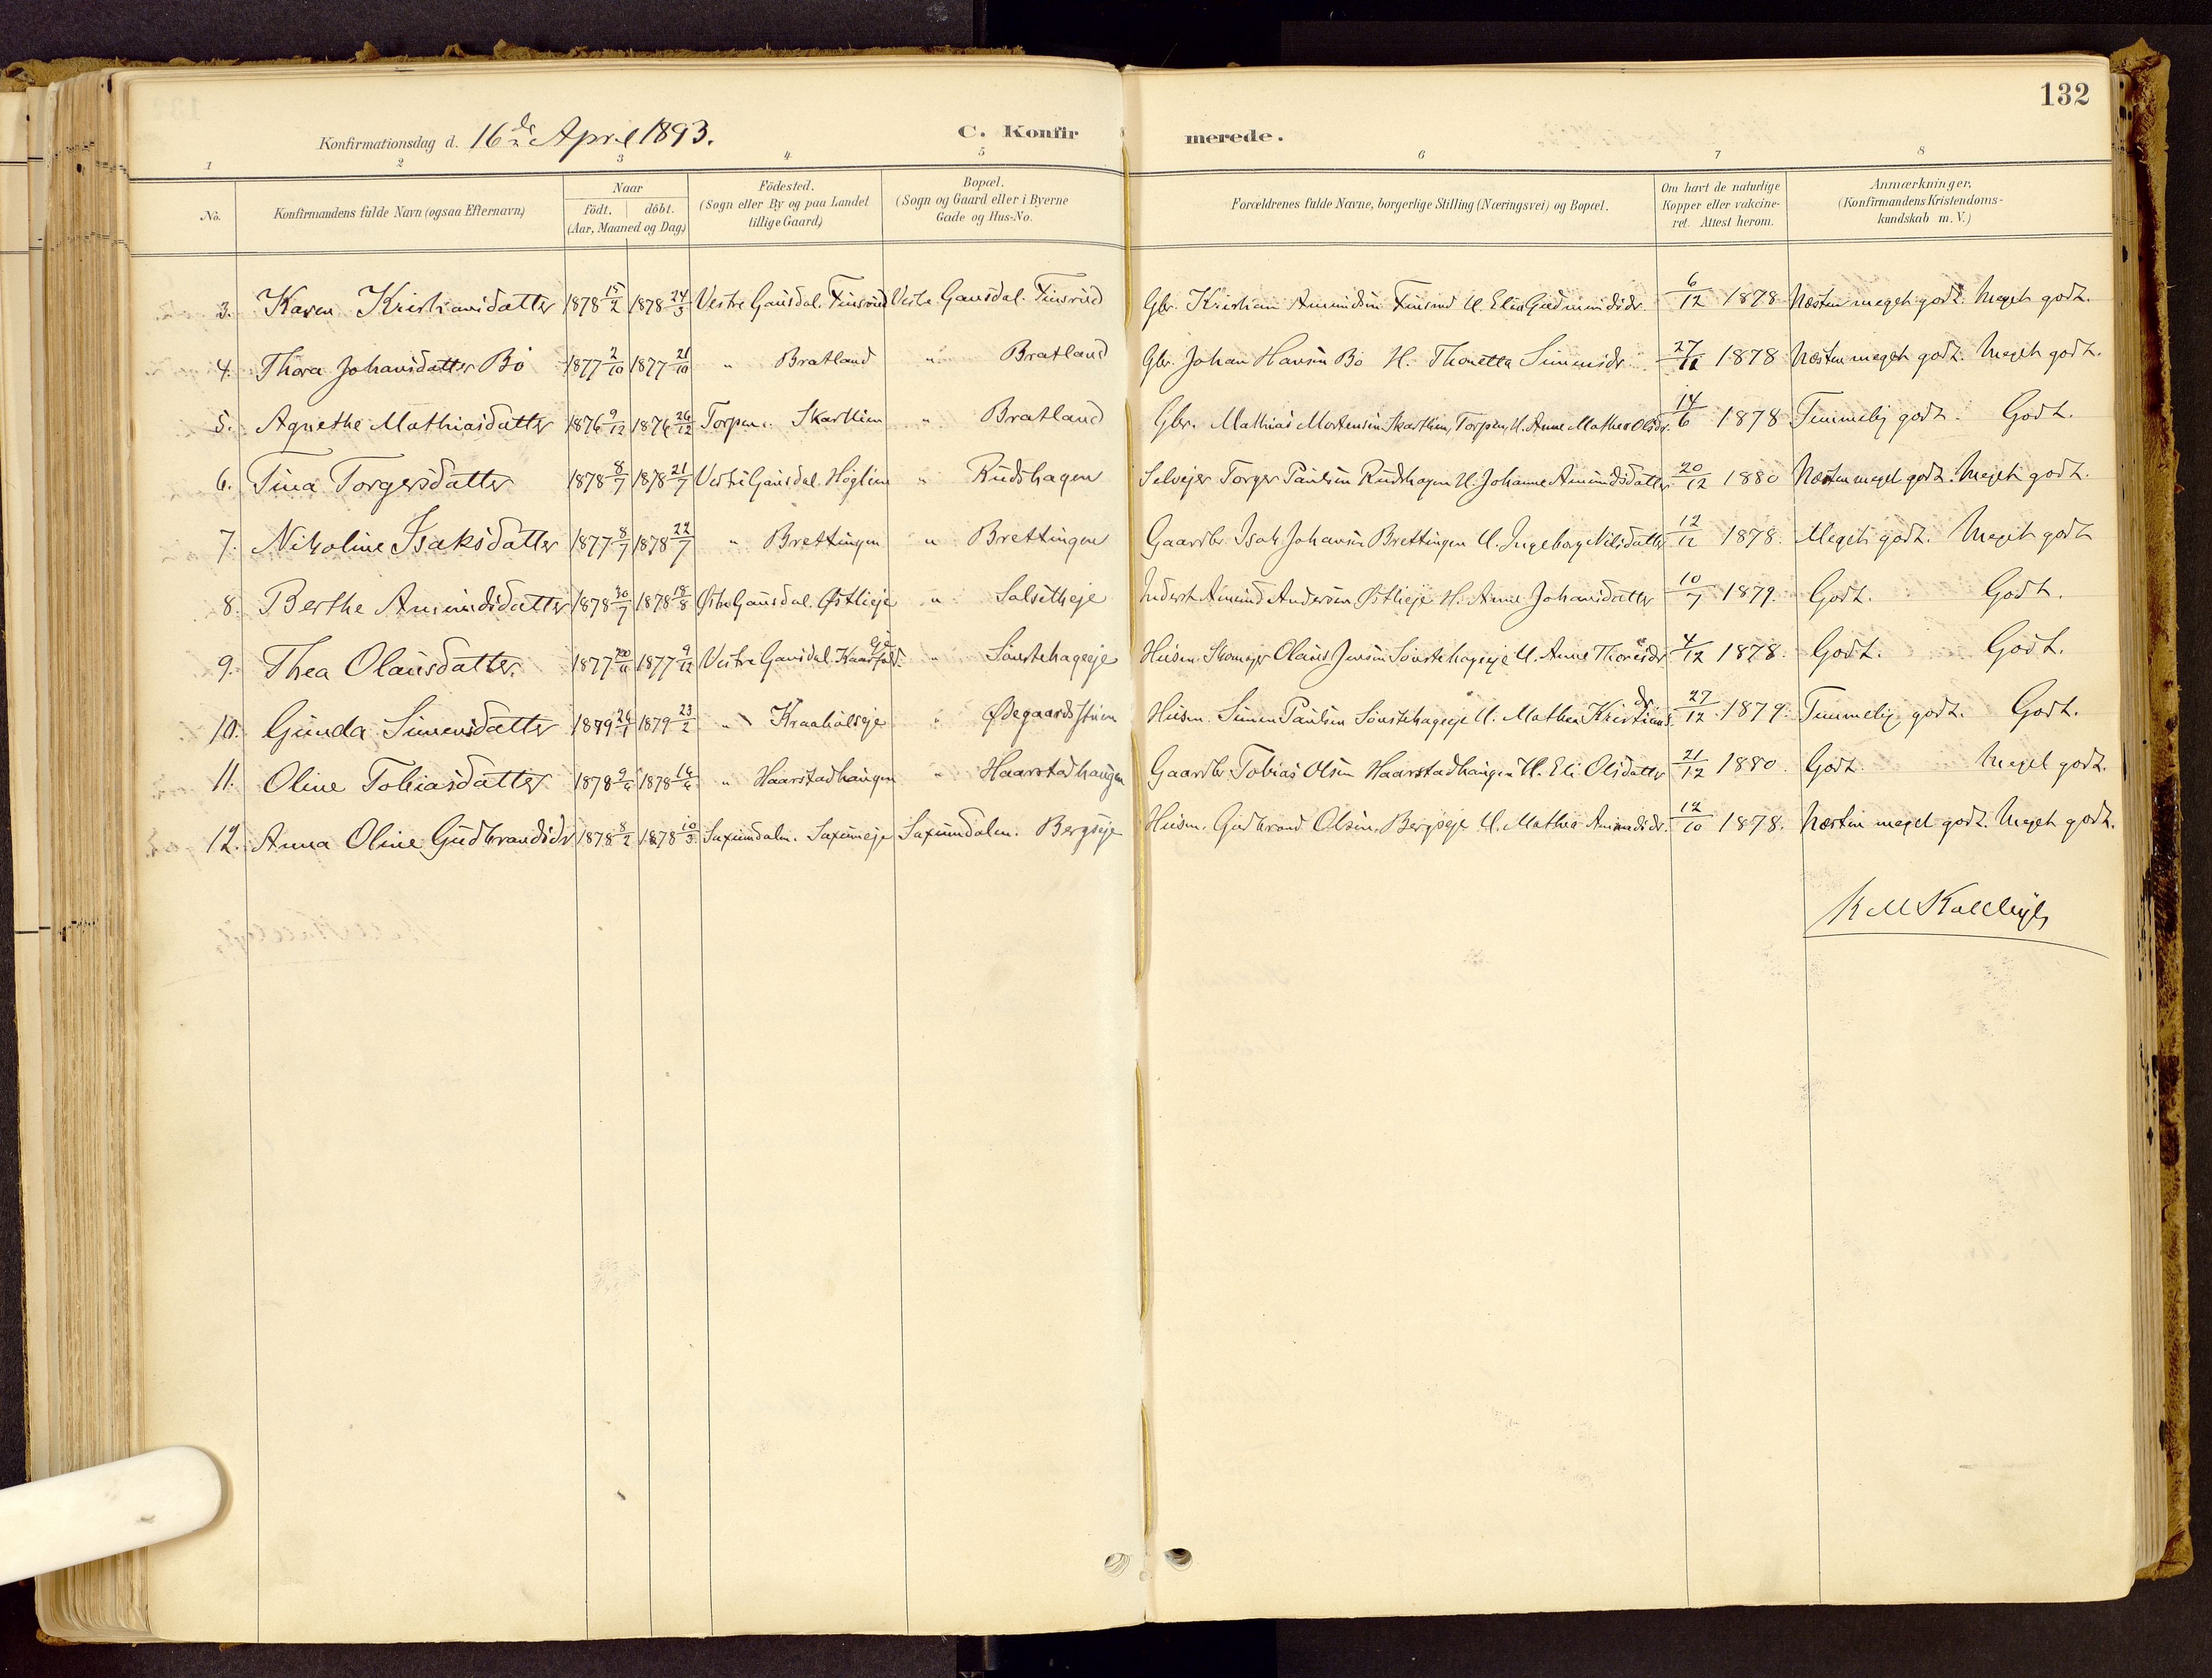 132
Konfirmationsdag d. 16de April 1893.
C. Konfirmerede.
1 2 3 4 5 6 7 8
No. Konfirmandens fulde Navn (ogsaa Efternavn)
Naar Födt. döbt. (Aar, Maaned og Dag)
Födested. (Sogn eller By og paa Landet tillige Gaard)
Bopæl. (Sogn og Gaard eller i Byerne Gade og Hus-No.
Forældrenes fulde Navne, borgerlige Stilling (Næringsvei) og Bopæl.
Om havt de naturlige Kopper eller vakcineret. Attest herom.
Anmærkninger, (Konfirmandens Kristendomskundskab m. V.)
3. Karen Kristiansdatter 1878 15/2 1878 24/3 Vestre Gausdal. Finsrud Vestre Gausdal. Finsrud Gbr. Kristian Amundsen Finsrud H. Elea Gudmundsdr. 6/12 1878 Næsten meget godt. Meget godt.
4. Thora Johansdatter Bö 1877 2/10 1877 21/10 " Bratland " Bratland Gbr. Johan Hansen Bö H. Thonetta Simensdr 1878 Næsten meget godt. Meget godt.
5. Agnethe Mathiasdatter 1876 9/12 1876 26/12 Torpen. Skartlien " Bratland Gbr. Mathias Mortensen Skartlien, Torpen, H. Anne Mathea Olsdr. 14/6 1878 Temmelig godt. Godt.
6. Tina Torgersdatter 1878 8/7 1878 21/7 Vestre Gausdal. Höglien " Rudshagen Selvejer Torger Paulsen Rudshagen H. Johanne Amundsdatter 20/12 1880 Næsten meget godt. Meget godt.
7. Nikoline Isaksdatter 1877 8/7 1878 22/7 " Brettingen " Brettingen Gaardbr. Isak Johansen Brettingen H. Ingeborg Nilsdatter 12/12 1878. Meget godt. Meget godt
8. Berthe Amundsdatter 1878 30/7 1878 18/8 Østre Gausdal. Østlieje " Solsetheje Inderst Amund Andersen Østlieje H. Anne Johansdatter 10/7 1879. Godt. Godt.
9. Thea Olausdatter. 1877 1877 9/12 Vestre Gausdal. " Sönstehageeje Husm. Skomager Olaus Jensen Sönstehageeje H. Anne Thoresdr 4/12 1878. Godt. Godt.
10. Gunda Simensdatter 1879 26/1 1879 23/2 " Kraabölseje " Ødegaardsstuen Husm. Simen Paulsen Sönstehageeje H. Mathea Kristiansdr. 27/12 1879. Temmelig godt. Godt.
11. Oline Tobiasdatter 1878 1878 " Haarstadhaugen " Haarstadhaugen Gaardbr. Tobias Olsen Haarstadhaugen H. Eli Olsdatter 21/12 1880. Godt. Meget godt.
12. Anna Oline Gudbrandsdr 1878 8/2 1878 10/3 Saxumdalen. Saxumeje Saxumdalen. Bergseje Husm. Gudbrand Olsen, Bergseje H. Mathea Amundsdr. 12/10 1878. Næsten meget godt. Meget godt.